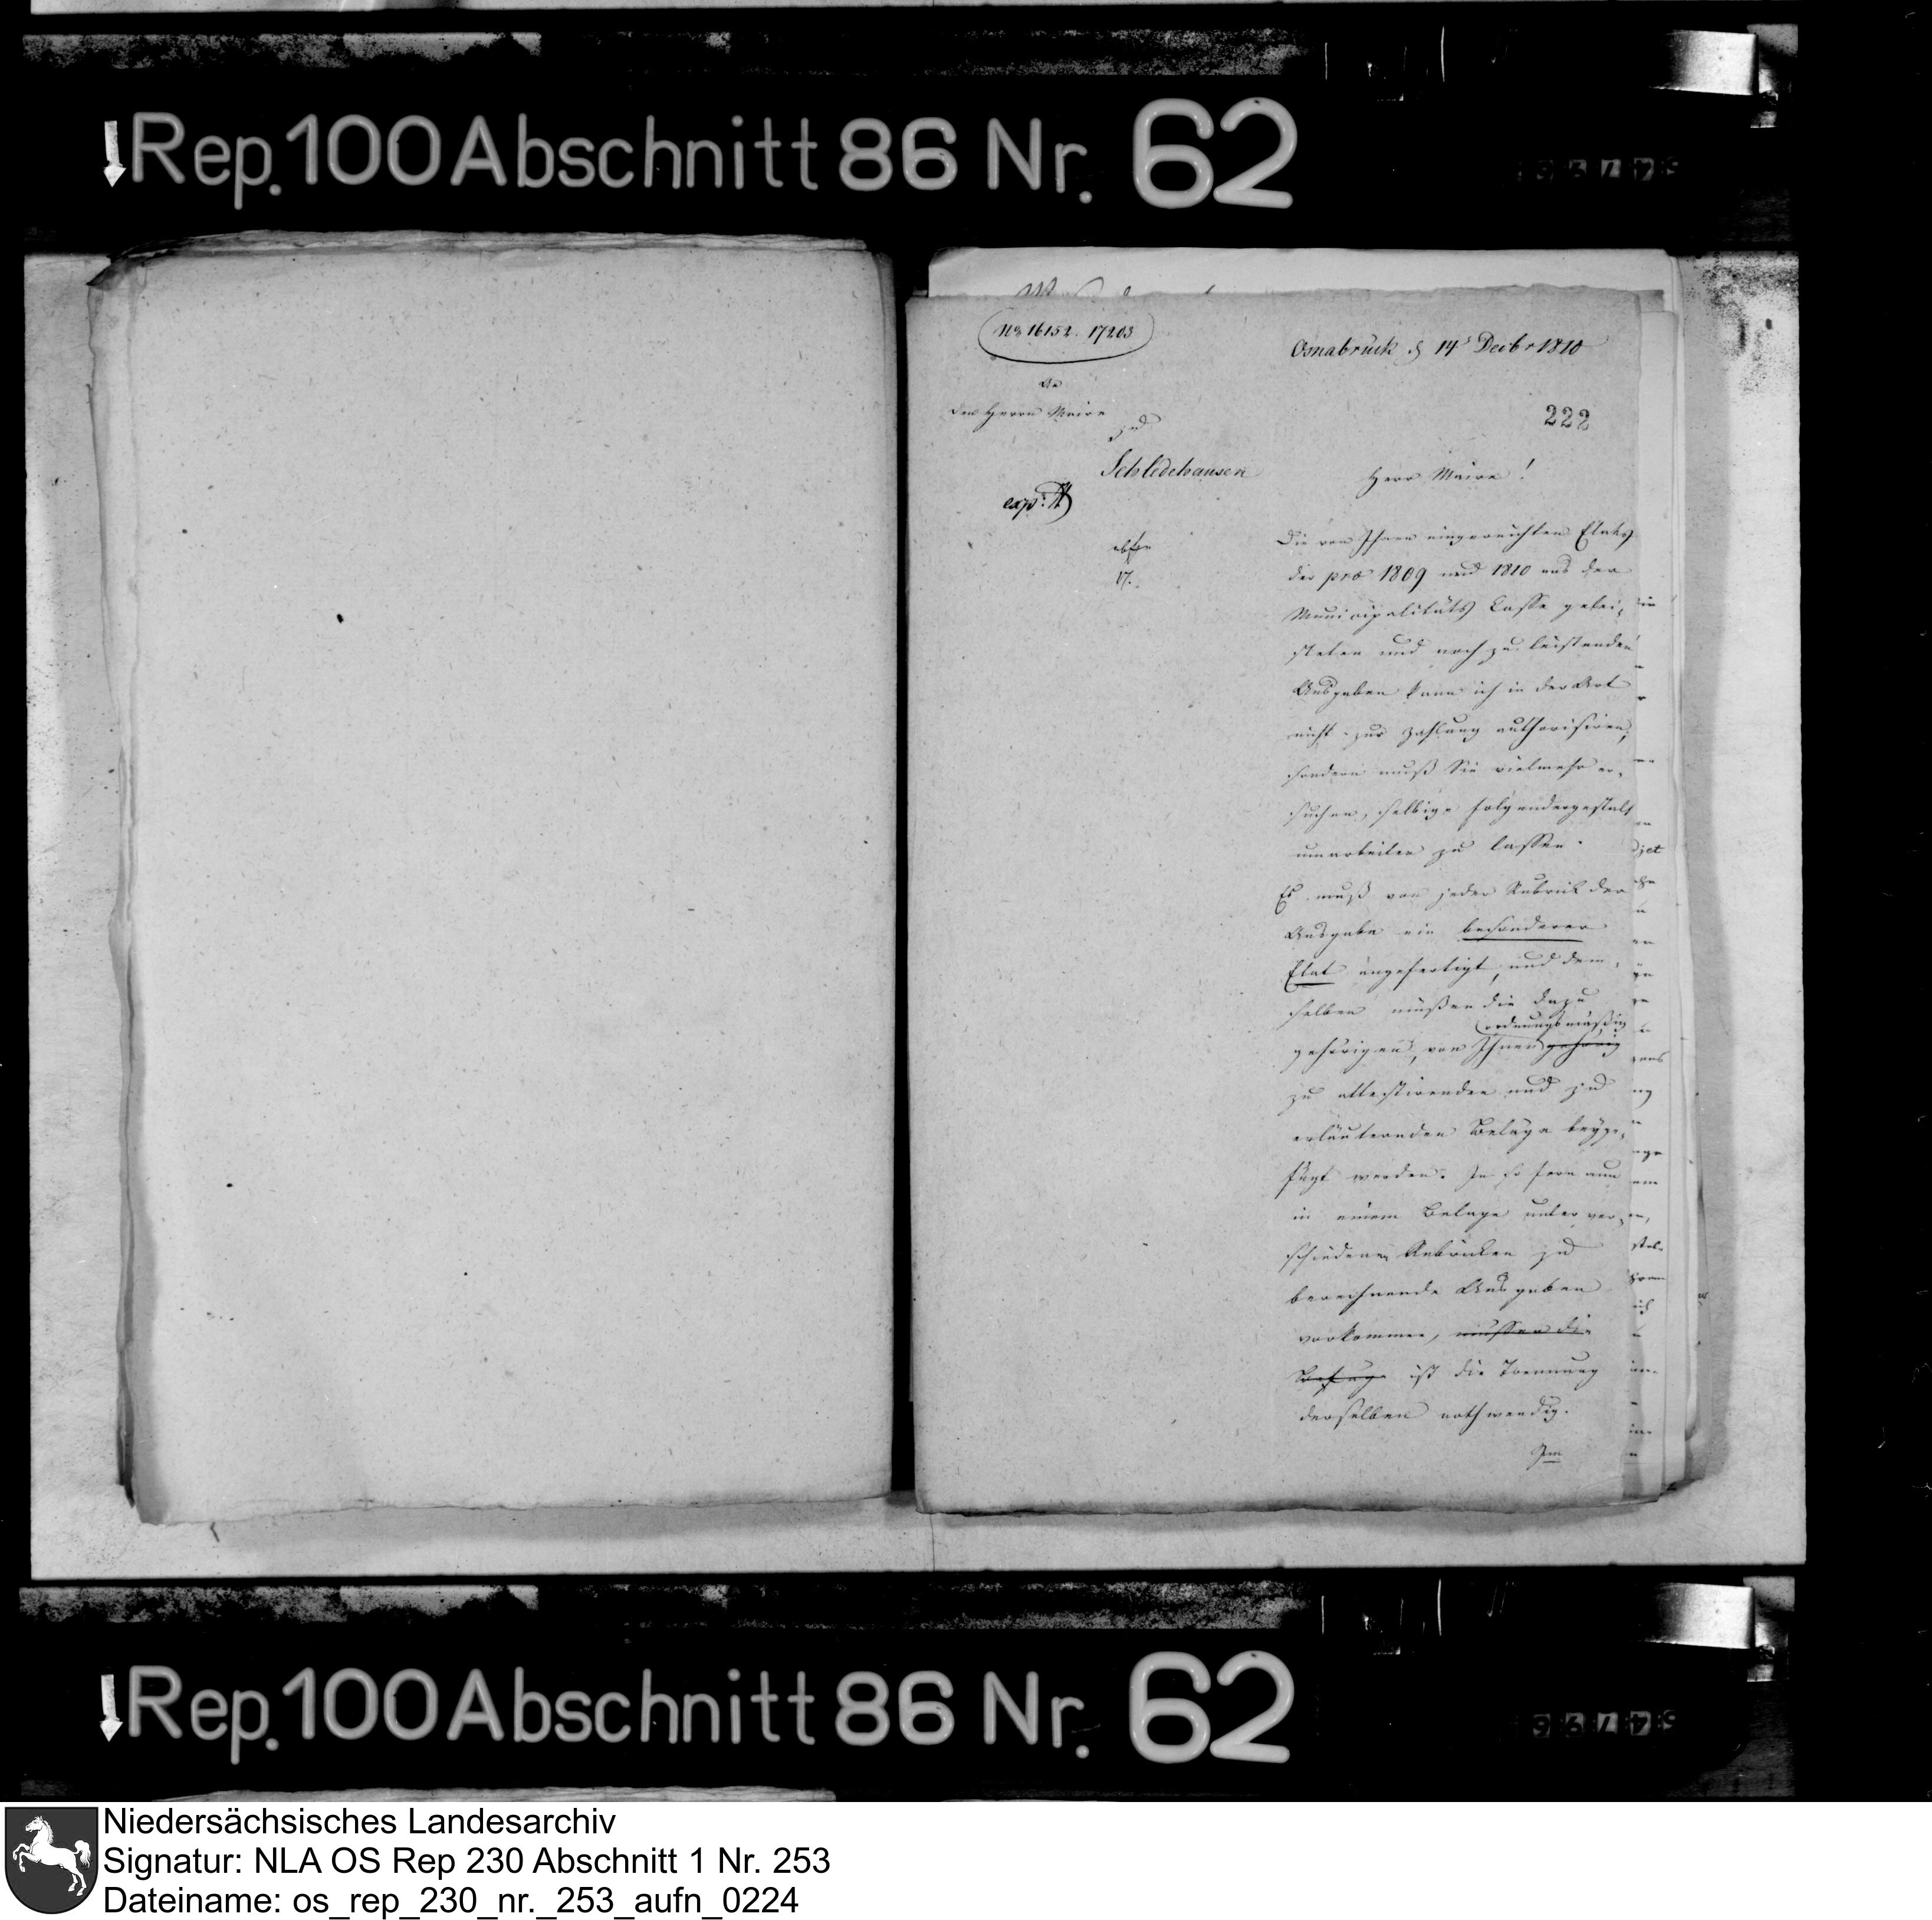 Rep. 100 Abschnitt 86 Nr. 62
No 16152. 17203
Osnabrück d 14t Decbr 1810
An
den Herrn Maire
zu
222
Schledehausen
Herr Maire!
exp:
Die von Ihnen eingereichten Etats
der pro 1809 und 1810 aus der
Municipalitäts Casse gelei-
steten und noch zu leistenden
Ausgaben kann ich in der Art
nicht zur Zahlung authorisiren,
sondern muß Sie vielmehr er-
suchen, selbige folgendergestalt
umarbeiten zu lassen.
Es muß von jeder Rubrik der
Ausgabe ein besonderer
Etat angefertigt, und dem-
selben müßen die dazu
ordnungsmäßig
gehörigen, von Ihnen gehörig
zu attestirenden und zu
erläuternden Beläge beyge-
fügt werden. In so fern nun
in einem Belage unter ver-
schiedenen Rubriken zu
berechnende Ausgaben
vorkommen, müssen die
ist die Trennung
derselben nothwendig.
Rep. 100 Abschnitt 86 Nr. 62
Niedersächsisches Landesarchiv
Signatur: NLA OS Rep 230 Abschnitt 1 Nr. 253
Dateiname: os_rep_230_nr._253_aufn_0224